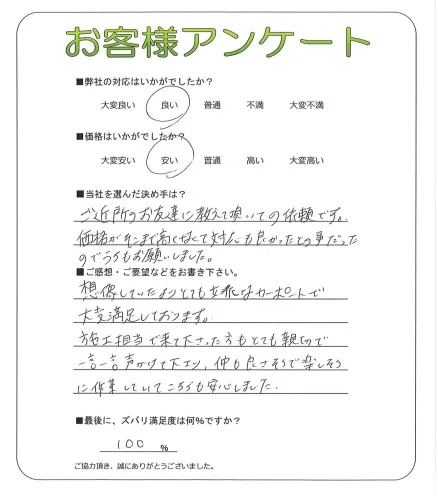 お客様アンケート
■弊社の対応はいかがでしたか？
大変良い 良い 普通 不満 大変不満
■価格はいかがでしたか？
大変安い 安い 普通 高い 大変高い
■当社を選んだ決め手は？
ご近所のお友達に教えて頂いての依頼です。
価格がそこまで高くなくて対応も良かったとの事だった
のでうちもお願いしました。
■ご感想・ご要望などをお書き下さい。
想像していたよりとても立派なカーポートで
大変満足しております。
施工担当で来て下さった方もとても親切で
一言一言声かけて下さり、仲も良さそうで楽しそう
に作業していてこちらも安心しました。
■最後に、ズバリ満足度は何％ですか？
100 %
ご協力頂き、誠にありがとうございました。